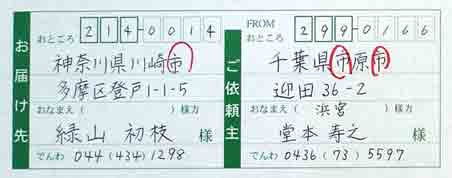 お届け先
おところ 214-0014
神奈川県川崎市
多摩区登戸1-1-5
おなまえ( )様方
緑山 初枝 様
でんわ 044(434)1298
ご依頼主
FROM
おところ 299-0166
千葉県市原市
迎田36-2
おなまえ( 浜宮 )様方
堂本 寿之 様
でんわ 0436(73)5597